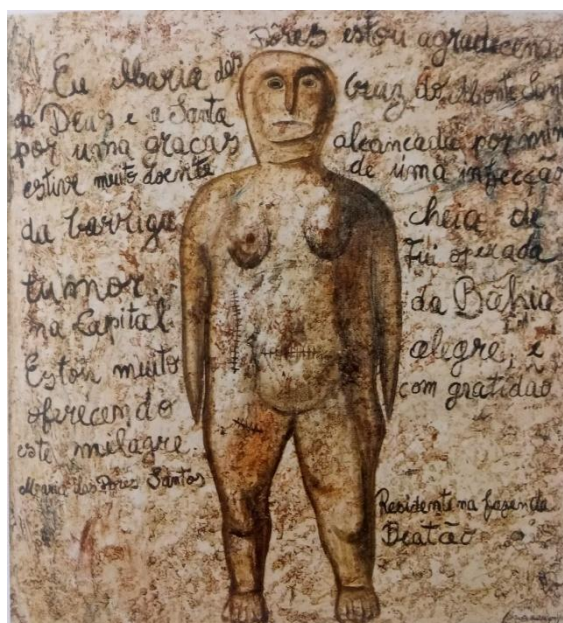 Eu Maria das Dôres estou agradicenno
da Deus e a Santa Cruz do Monte Sant
por uma graças alcancada por mim
estive muito doente de uma infecção
da barriga cheia de
tumor. Fui operada
na Capital da Bahia
Estou muito alegre, e
oferecendo com gratidão
este melagre.
Maria das Dores Santos
Residente na fazenda
Beatão